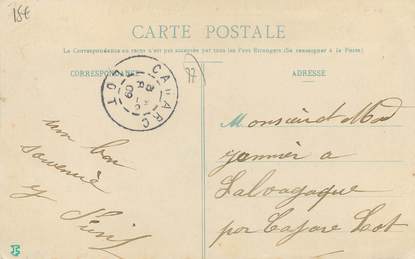 15€
CARTE POSTALE
La Correspondance au recto n'est pas acceptée par tous les Pays Etrangers (Se renseigner à la Poste)
CORRESPONDANCE
77
ADRESSE
CAJARC
09
LOT
Monsieur et Mad
a
un bon
souvenir
Lalvagaque
par Cajare Lot